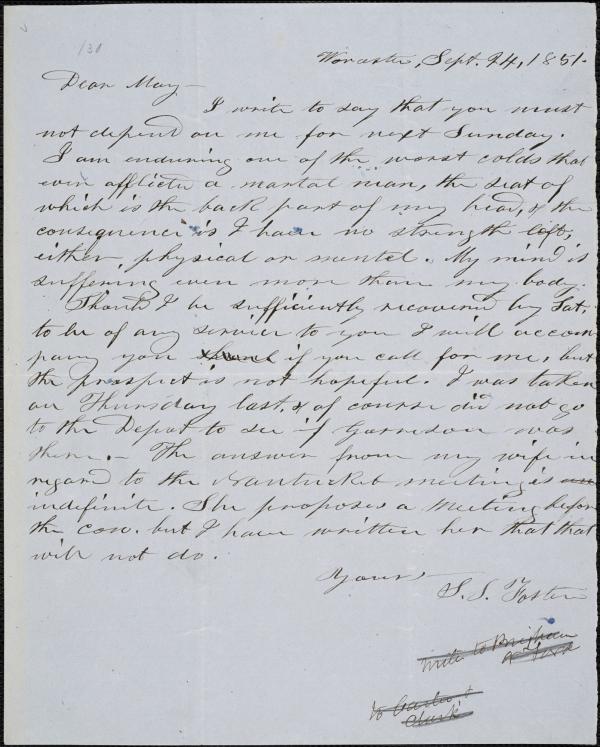 130
Worcester, Sept. 24, 1851.
Dear May—
I write to say that you must
not depend on me for next Sunday.
I am enduring one of the worst colds that
ever afflicted a mortal man, the seat of
which is the back part of my head, & the
consequence is I have no strength left,
either physical or mental. My mind is
suffering even more than my body.
Should I be sufficiently recovered by Sat.
to be of any service to you I will accom
pany you if you call for me, but
the prospect is not hopeful. I was taken
on Thursday last, & of course did not go
to the Depot to see if Garrison was
there.— The answer from my wife in
regard to the Nantucket meeting is
indefinite. She proposes a meeting before
the con. but I have written her that that
will not do.
Yours
S. S. Foster
write to Brigham
to
Clark